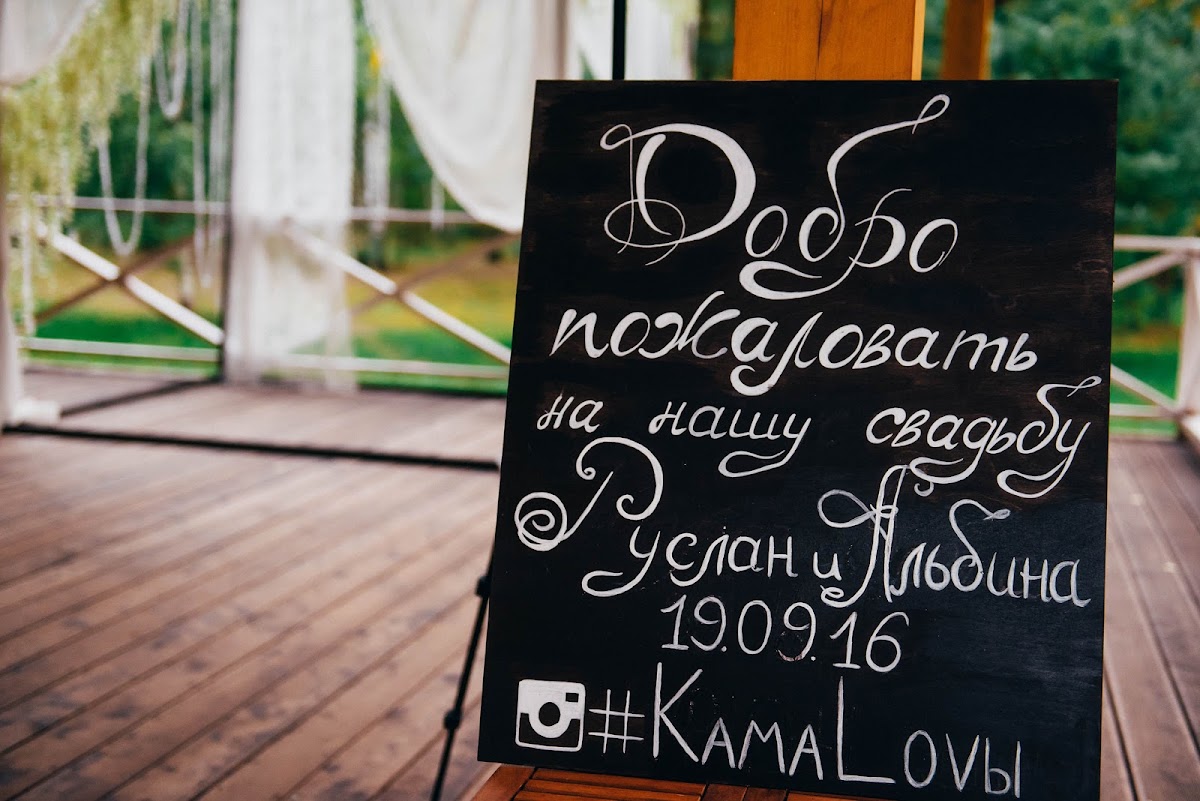 Добро
пожаловать
на нашу свадьбу
Руслан и Альбина
19.09.16
#КамаLovы